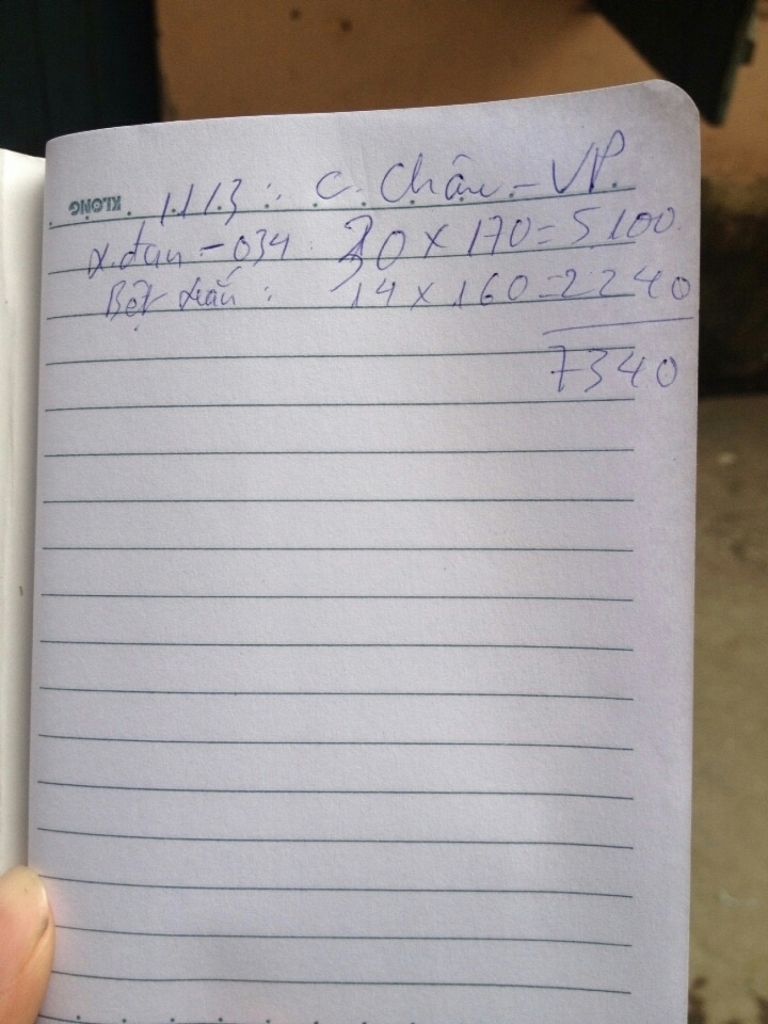 KLONG
11/3: C. Châu - VP.
x.đan - 034: 30 x 170 = 5.100
Bột sắn: 14 x 160 = 2240
7340